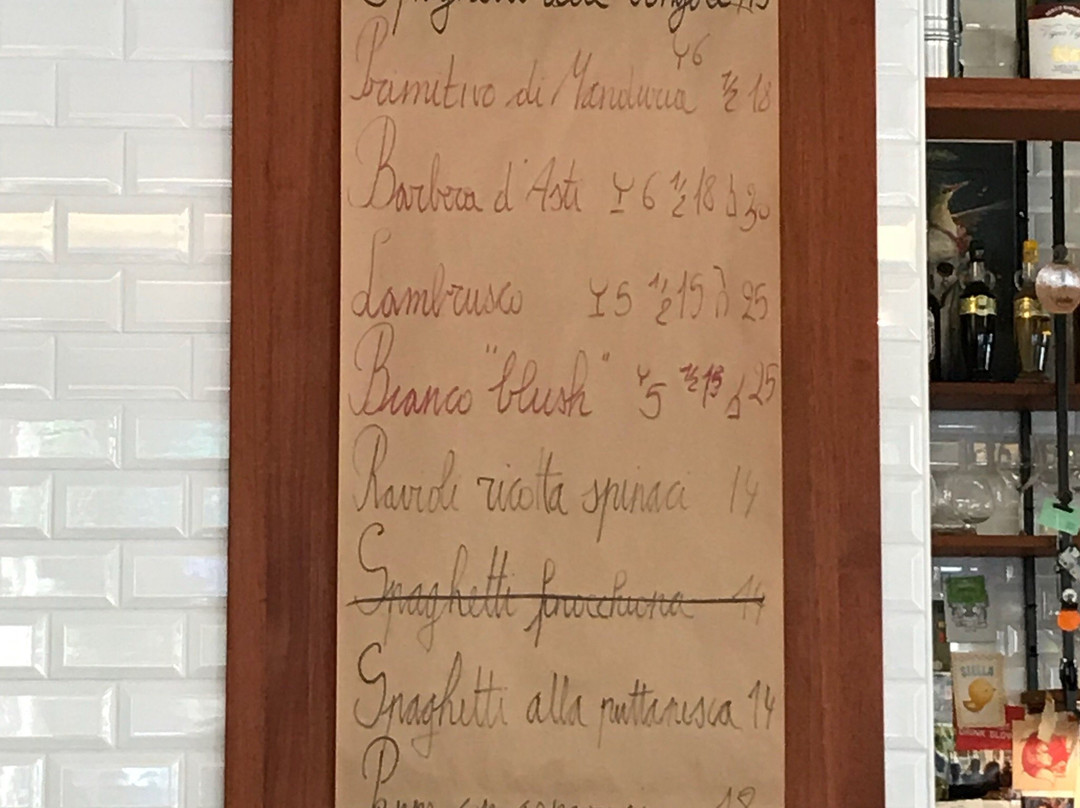 6
Primitivo di Manduria ½ 18
Barbera d'Asti 6 ½ 18 30
Lambrusco 5 ½ 15 25
Bianco "blush" 5 ½ 15 25
Ravioli ricotta spinaci 14
Spaghetti finocchiona 14
Spaghetti alla puttanesca 14
STELLA